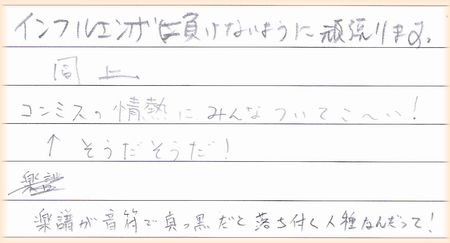 インフルエンザに負けないように頑張ります。
同上
コンミスの情熱にみんなついてこ〜い!
↑ そうだそうだ!
楽譜
楽譜が音符で真っ黒だと落ち付く人種なんだって!